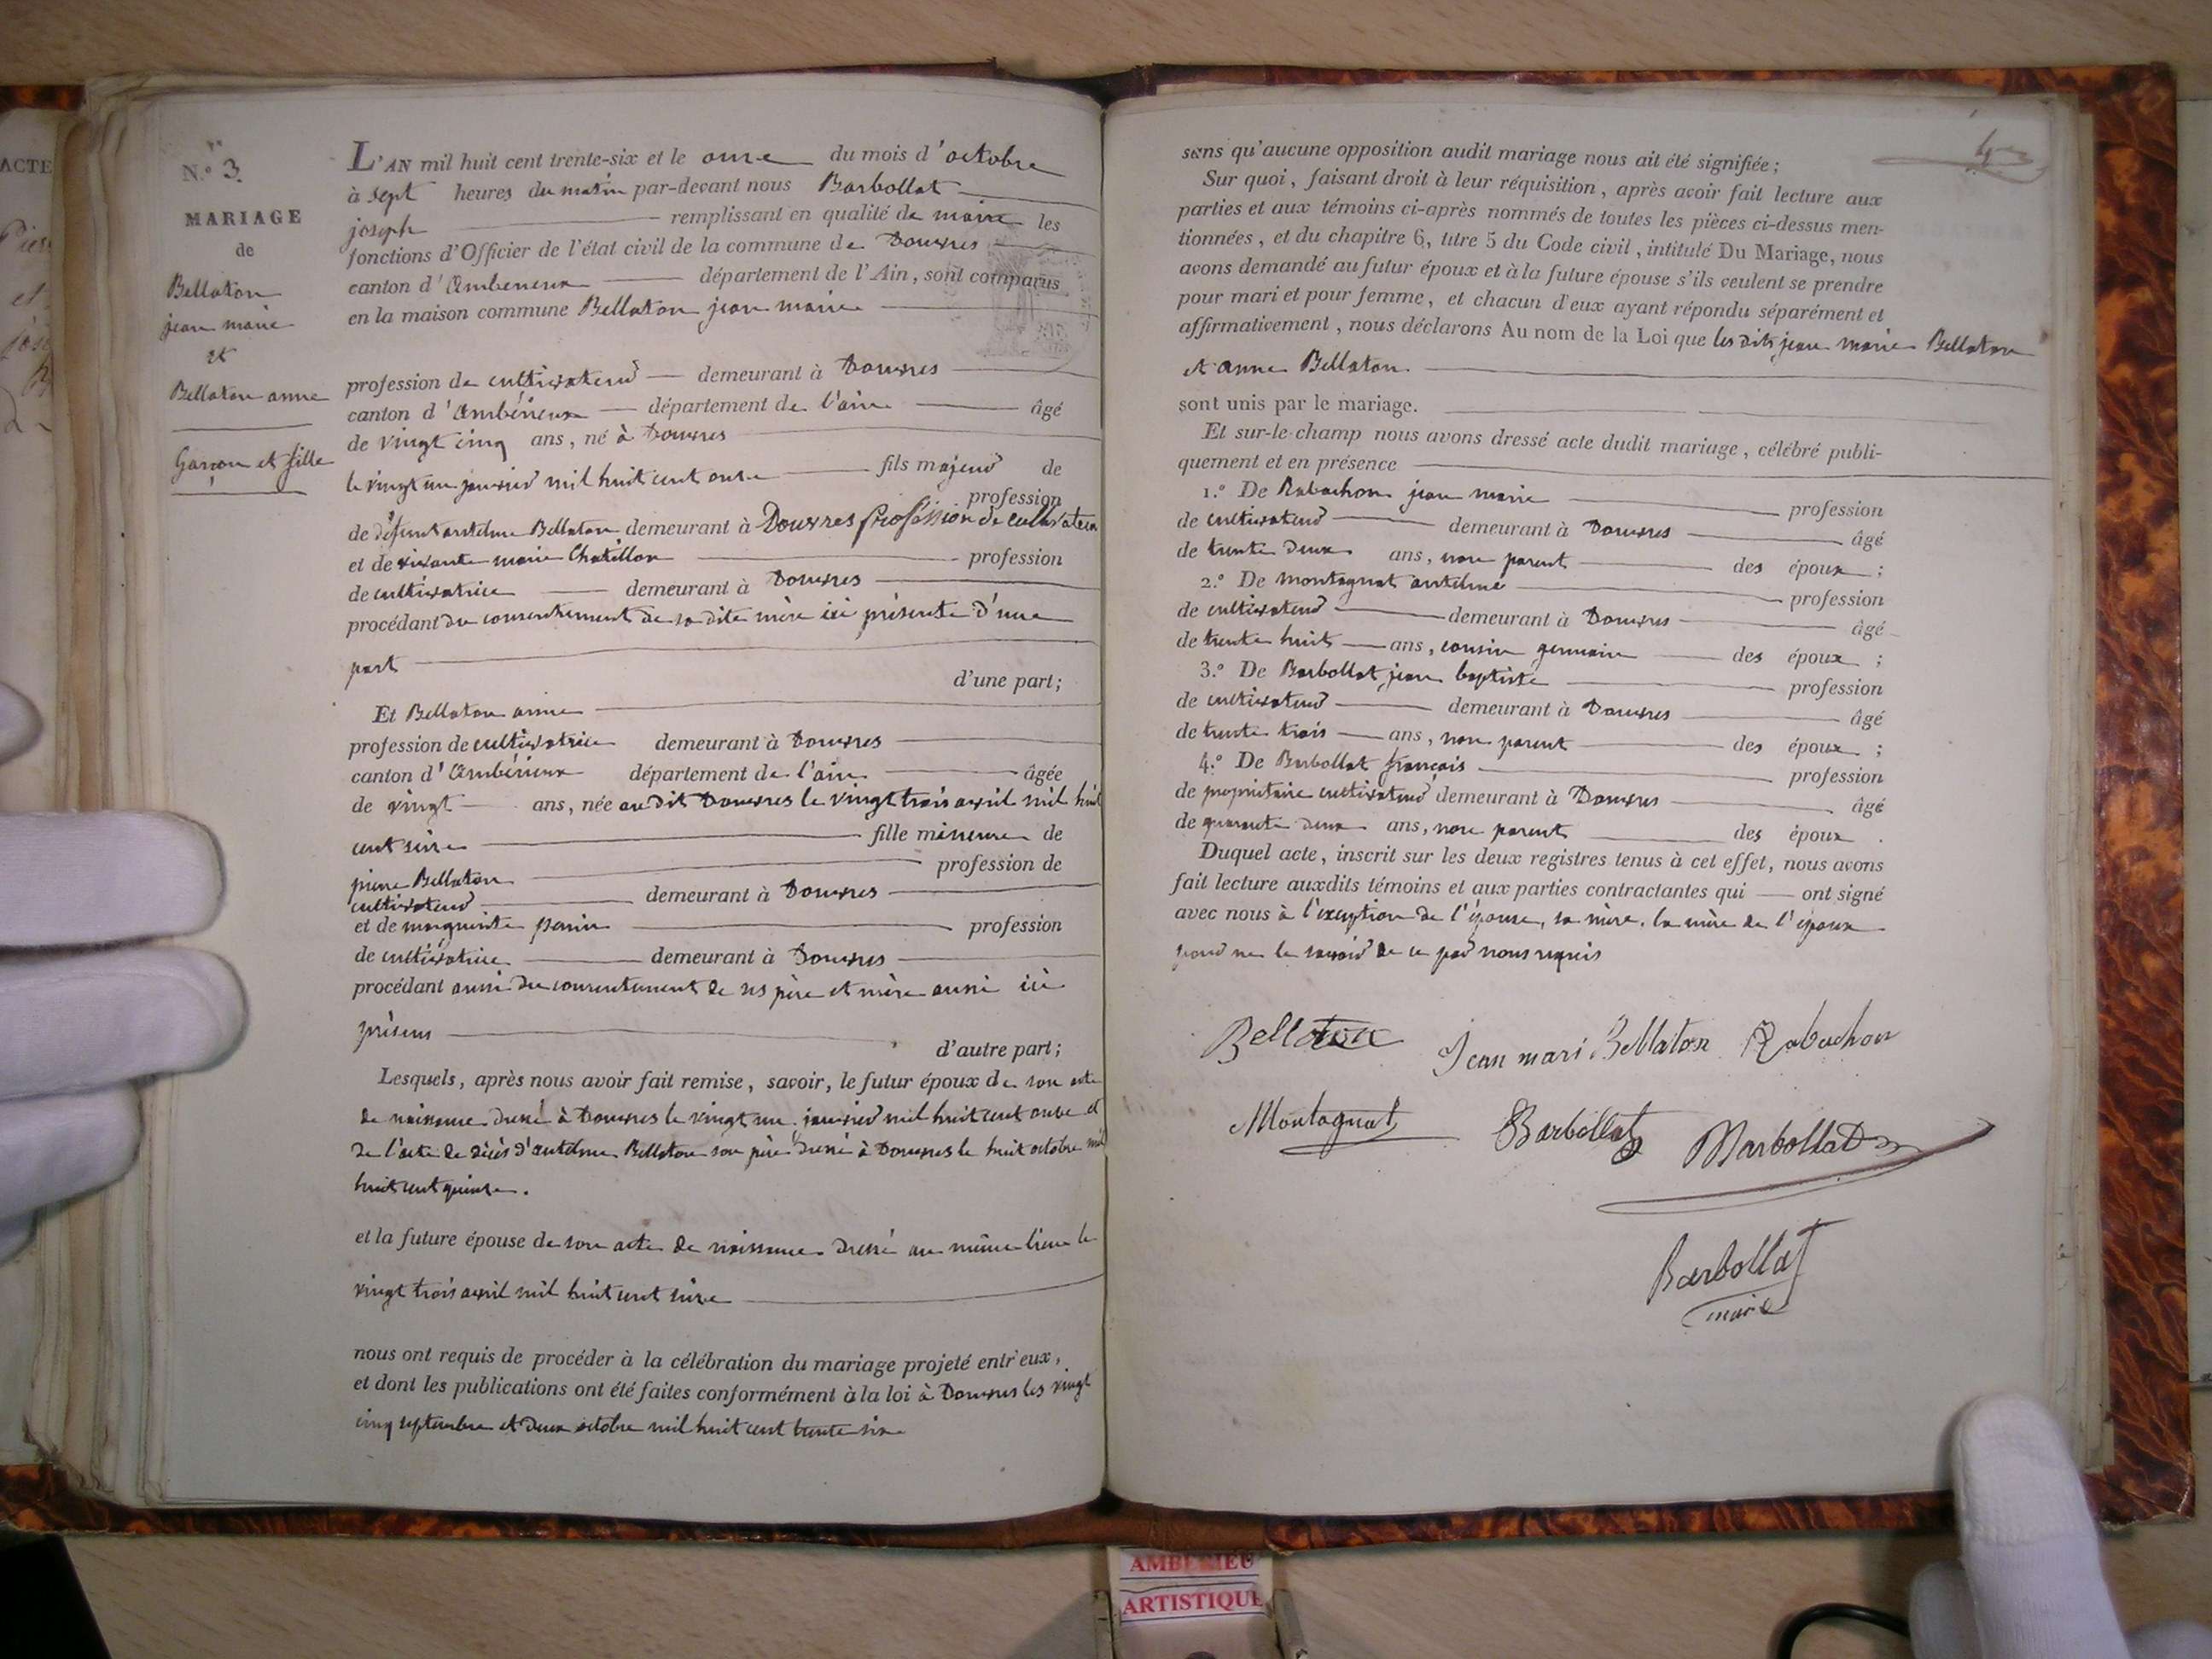 ACTE
N.º 3.
MARIAGE
de
Bellaton
jean marie
et
Bellaton anne
Garçon et fille
L'AN mil huit cent trente-six et le onze du mois d'octobre
à sept heures du matin par-devant nous Barbollat
joseph remplissant en qualité de maire les
fonctions d'Officier de l'état civil de la commune de Douvres
canton d'Ambérieux département de l'Ain, sont comparus
en la maison commune Bellaton jean marie
profession de cultivateur demeurant à Douvres
canton d'Ambérieux département de l'ain âgé
de vingt cinq ans, né à Douvres
le vingt un janvier mil huit cent onze fils majeur de
profession
de défunt antelme Bellaton demeurant à Douvres profession de cultivateur
et de vivante marie Chatillon profession
de cultivatrice demeurant à Douvres
procédant du consentement de sa dite mère ici présente d'une
part
d'une part;
Et Bellaton anne
profession de cultivatrice demeurant à Douvres
canton d'Ambérieux département de l'ain âgée
de vingt ans, née audit Douvres le vingt trois avril mil huit
cent seize fille mineure de
pierre Bellaton profession de
cultivateur demeurant à Douvres
et de marguerite perrin profession
de cultivatrice demeurant à Douvres
procédant aussi du consentement de ses père et mère aussi ici
présens
d'autre part;
Lesquels, après nous avoir fait remise, savoir, le futur époux de son acte
de naissance dressé à Douvres le vingt un janvier mil huit cent onze et
de l'acte de décès d'antelme Bellaton son père dressé à Douvres le huit octobre mil
huit cent quinze.
et la future épouse de son acte de naissance dressé au même lieu le
vingt trois avril mil huit cent seize
nous ont requis de procéder à la célébration du mariage projeté entr'eux,
et dont les publications ont été faites conformément à la loi à Douvres les vingt
cinq septembre et deux octobre mil huit cent trente six
4
sans qu'aucune opposition audit mariage nous ait été signifiée;
Sur quoi, faisant droit à leur réquisition, après avoir fait lecture aux
parties et aux témoins ci-après nommés de toutes les pièces ci-dessus men-
tionnées, et du chapitre 6, titre 5 du Code civil, intitulé Du Mariage, nous
avons demandé au futur époux et à la future épouse s'ils veulent se prendre
pour mari et pour femme, et chacun d'eux ayant répondu séparément et
affirmativement, nous déclarons Au nom de la Loi que les dits jean marie Bellaton
et anne Bellaton.
sont unis par le mariage.
Et sur-le-champ nous avons dressé acte dudit mariage, célébré publi-
quement et en présence
1.º De Rabachon jean marie profession
de cultivateur demeurant à Douvres âgé
de trente deux ans, non parent des époux;
2.º De montagnat antelme profession
de cultivateur demeurant à Douvres âgé
de trente huit ans, cousin germain des époux;
3.º De Barbollat jean baptiste profession
de cultivateur demeurant à Douvres âgé
de trente trois ans, non parent des époux;
4.º De Barbollat françois profession
de propriétaire cultivateur demeurant à Douvres âgé
de quarante deux ans, non parent des époux.
Duquel acte, inscrit sur les deux registres tenus à cet effet, nous avons
fait lecture auxdits témoins et aux parties contractantes qui ont signé
avec nous à l'exception de l'épouse, sa mère, la mère de l'époux
pour ne le savoir de ce par nous requis
Bellaton Jean mari Bellaton Rabachon
Montagnat Barbollat Barbollat
Barbollat
maire
AMBERIEU
ARTISTIQUE